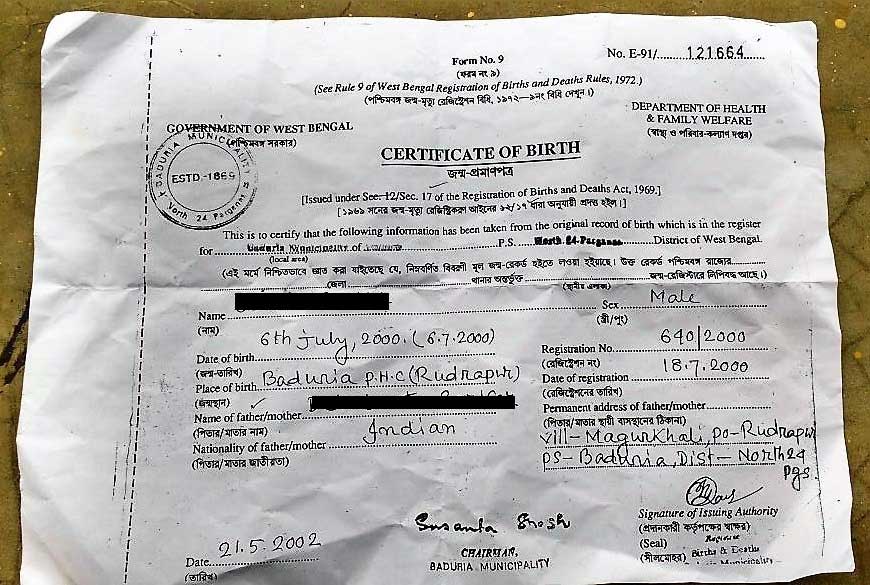 Form No. 9
(ফরম নং ৯)
No. E-91/ 121664
(See Rule 9 of West Bengal Registration of Births and Deaths Rules, 1972.)
(পশ্চিমবঙ্গ জন্ম-মৃত্যু রেজিষ্ট্রেশন বিধি, ১৯৭২—৯নং বিধি দেখুন।)
GOVERNMENT OF WEST BENGAL
(পশ্চিমবঙ্গ সরকার)
DEPARTMENT OF HEALTH
& FAMILY WELFARE
(স্বাস্থ্য ও পরিবার-কল্যাণ দপ্তর)
BADURIA MUNICIPALITY
ESTD.-1869
North 24 Parganas
CERTIFICATE OF BIRTH
জন্ম-প্রমাণপত্র
[Issued under Sec. 12/Sec. 17 of the Registration of Births and Deaths Act, 1969.]
[১৯৬৯ সনের জন্ম-মৃত্যু রেজিষ্ট্রিকরণ আইনের ১২/১৭ ধারা অনুযায়ী প্রদত্ত হইল।]
This is to certify that the following information has been taken from the original record of birth which is in the register
for Baduria Municipality of P.S. North 24-Parganas District of West Bengal.
(local area)
(এই মর্মে নিশ্চিতভাবে জ্ঞাত করা যাইতেছে যে, নিম্নবর্ণিত বিবরণী মূল জন্ম-রেকর্ড হইতে লওয়া হইয়াছে। উক্ত রেকর্ড পশ্চিমবঙ্গ রাজ্যের
জেলা থানার অন্তর্ভুক্ত (স্থানীয় এলাকা) জন্ম-রেজিস্টারে লিপিবদ্ধ আছে।)
Name Sex Male
(নাম) (স্ত্রী/পুং)
Date of birth 6th July, 2000. (6.7.2000)
(জন্ম-তারিখ)
Registration No. 640/2000
(রেজিষ্ট্রেশন নং)
Place of birth Baduria P.H.C (Rudrapur)
(জন্মস্থান)
Date of registration 18.7.2000
(রেজিষ্ট্রেশনের তারিখ)
Name of father/mother
(পিতার/মাতার নাম)
Permanent address of father/mother
(পিতার/মাতার স্থায়ী বাসস্থানের ঠিকানা)
Vill- Magurkhali, PO- Rudrapur
PS- Baduria, Dist- North 24
Pgs.
Nationality of father/mother Indian
(পিতার/মাতার জাতীয়তা)
Signature of Issuing Authority
(প্রদানকারী কর্তৃপক্ষের স্বাক্ষর)
(Seal)
(সীলমোহর) Births & Deaths
Municipality
Susanta Ghosh
CHAIRMAN,
BADURIA MUNICIPALITY
Date 21.5.2002
(তারিখ)